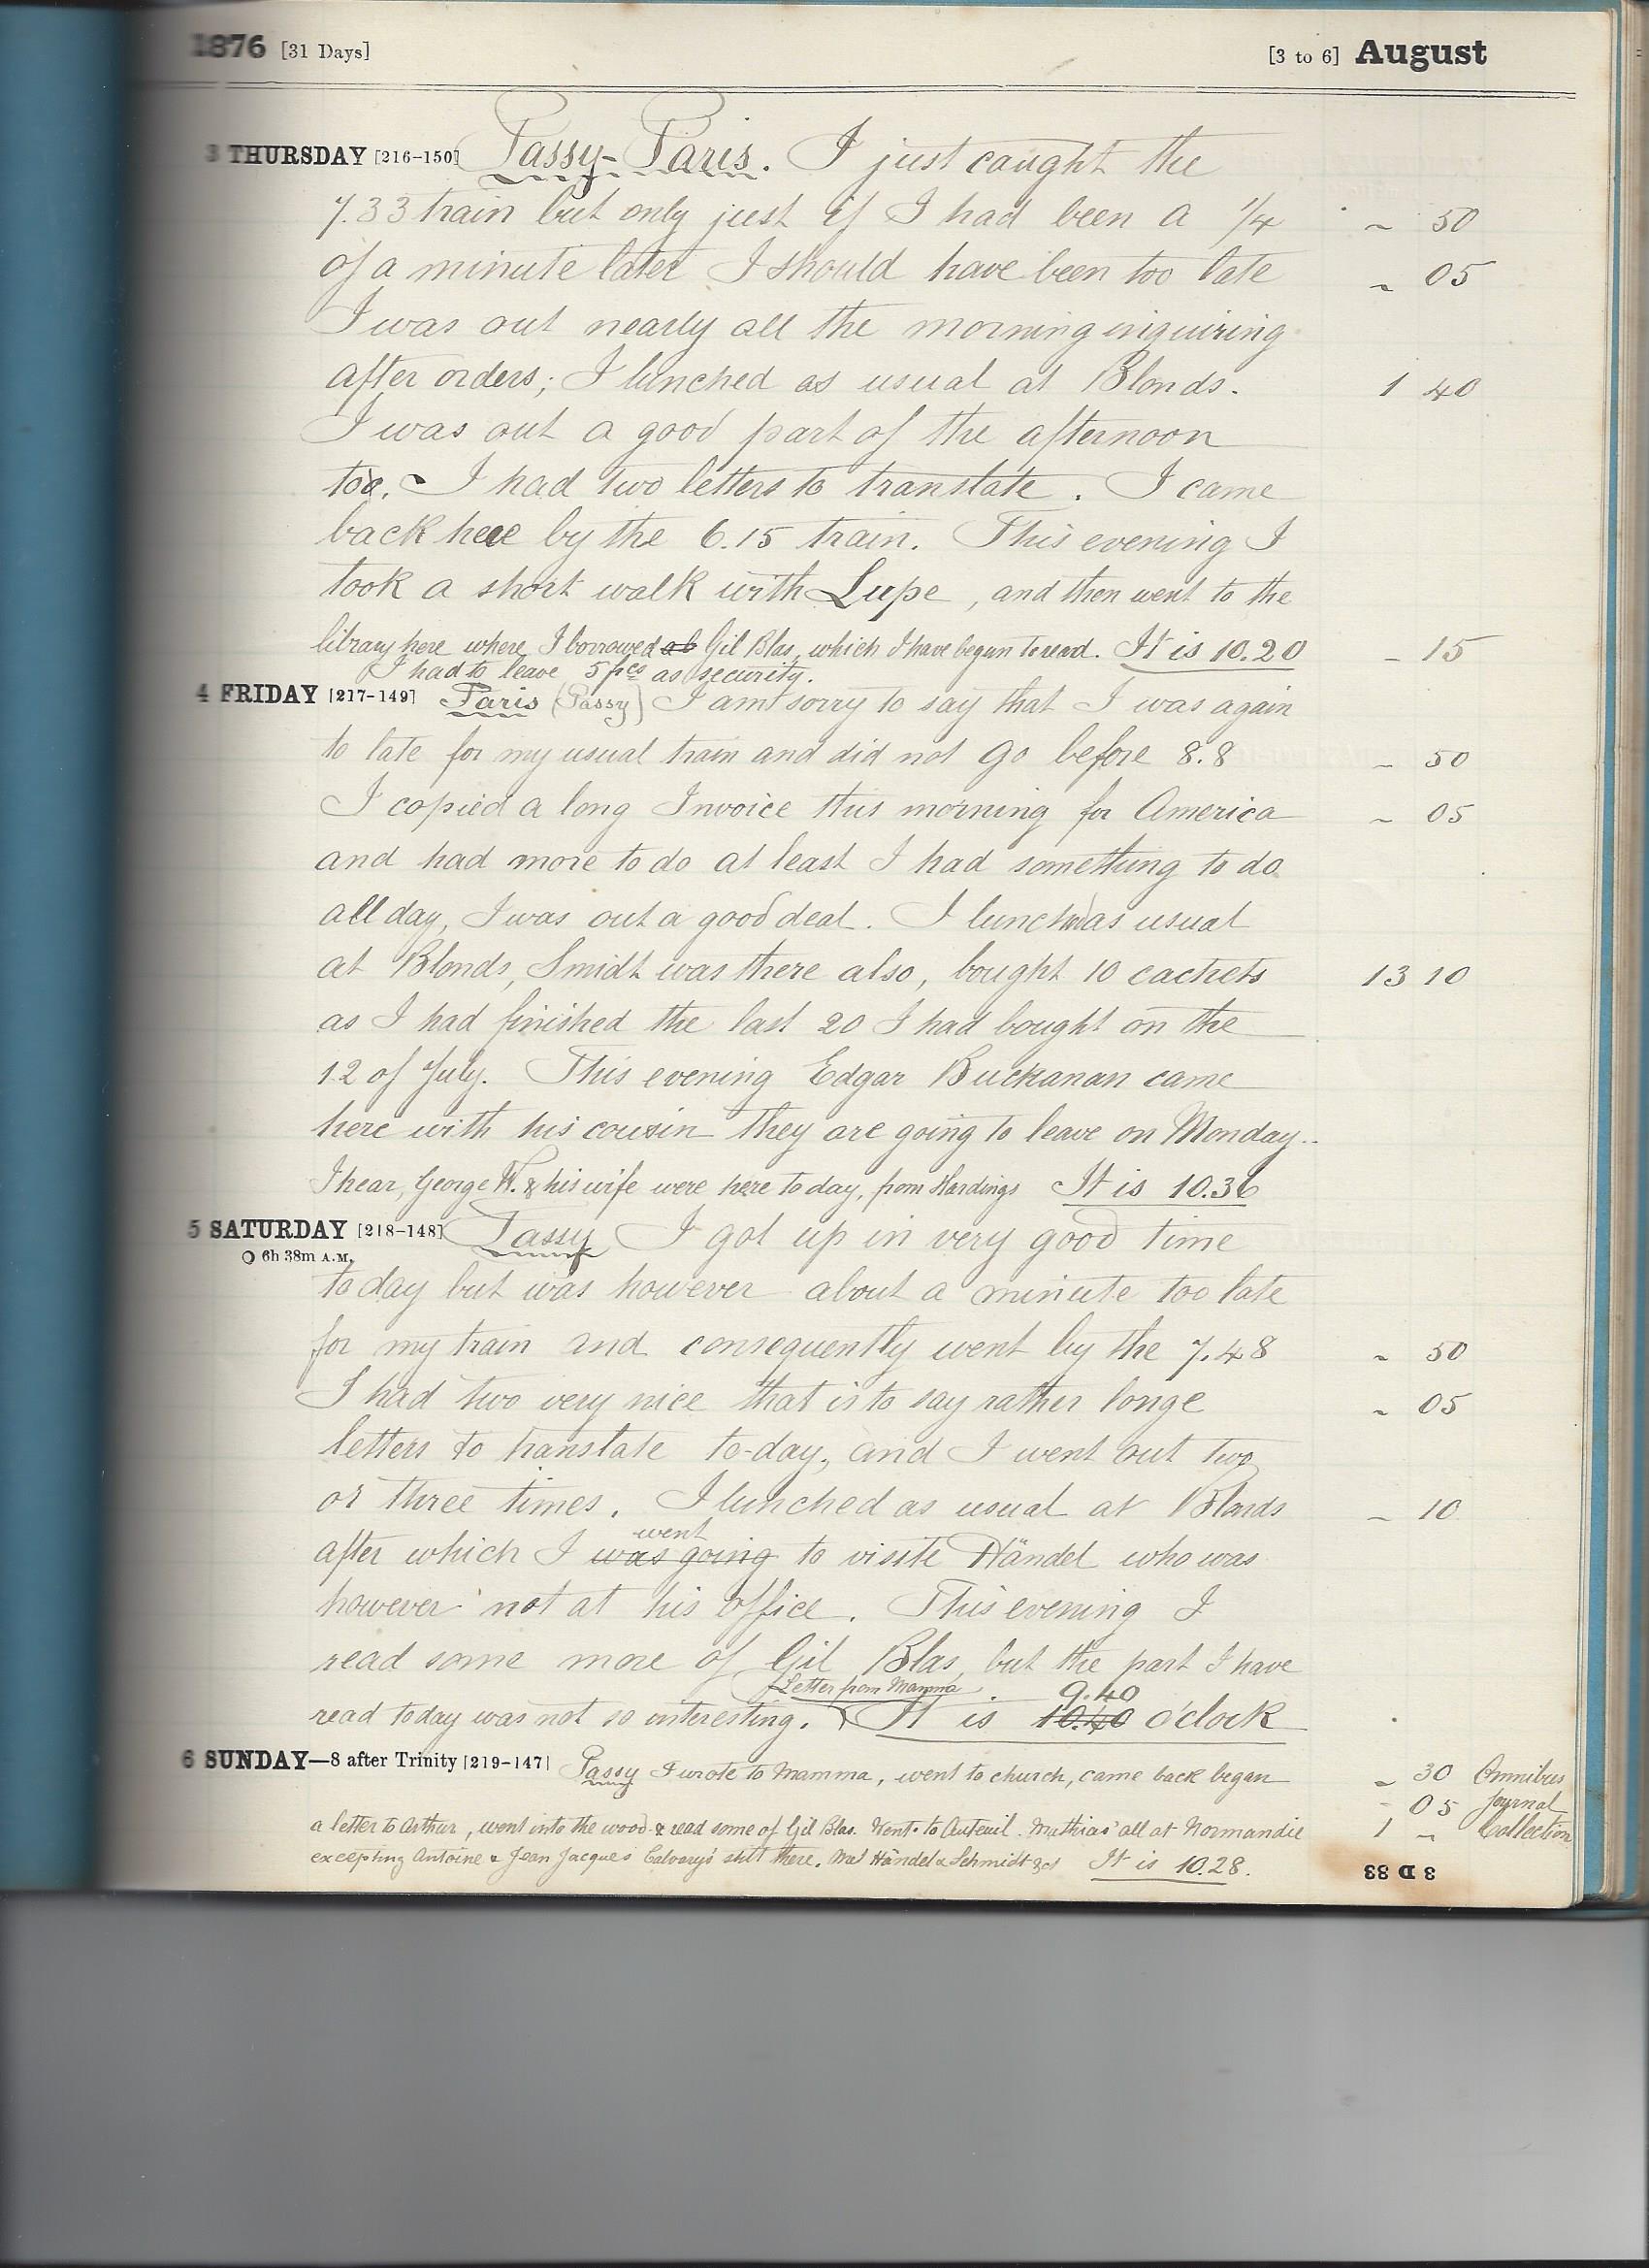 1876 [31 Days] [3 to 6] August
3 THURSDAY [216-150] Passy-Paris. I just caught the
7.33 train but only just if I had been a 1/4 ~ 50
of a minute later I should have been too late ~ 05
I was out nearly all the morning inquiring
after orders; I lunched as usual at Blonds. 1 40
I was out a good part of the afternoon
too. I had two letters to translate. I came
back here by the 6.15 train. This evening I
took a short walk with Lupe, and then went to the
library here where I borrowed Gil Blas, which I have begun to read. It is 10.20 - 15
I had to leave 5 fcs as security.
4 FRIDAY [217-149] Paris (Passy) I am sorry to say that I was again
to late for my usual train and did not go before 8.8 ~ 50
I copied a long Invoice this morning for America ~ 05
and had more to do at least I had something to do
all day, I was out a good deal. I lunched as usual
at Blonds, Smidt was there also, bought 10 cachets 13 10
as I had finished the last 20 I had bought on the
12 of July. This evening Edgar Buckanan came
here with his cousin they are going to leave on Monday..
I hear, George W. & his wife were here to day, from Hardings It is 10.36
5 SATURDAY [218-148] Passy I got up in very good time
O 6h 38m A.M.
to day but was however about a minute too late
for my train and consequently went by the 7.48 ~ 50
I had two very nice that is to say rather longe ~ 05
letters to translate to-day, and I went out two
or three times. I lunched as usual at Blonds - 10
went
after which I was going to visite Händel who was
however not at his office. This evening I
read some more of Gil Blas, but the part I have
Letter from Mamma. 9.40
read today was not so interesting. It is 10.40 o'clock
6 SUNDAY—8 after Trinity [219-147] Passy I wrote to Mamma, went to church, came back began ~ 30 Omnibus
- 05 Journal
a letter to Arthur, went into the wood & read some of Gil Blas. Went to Auteuil. Mathias' all at Normandie 1 ~ Collection
excepting Antoine & Jean Jacques Calvary's still there. Händel & Schmidt It is 10.28.
3 D 33